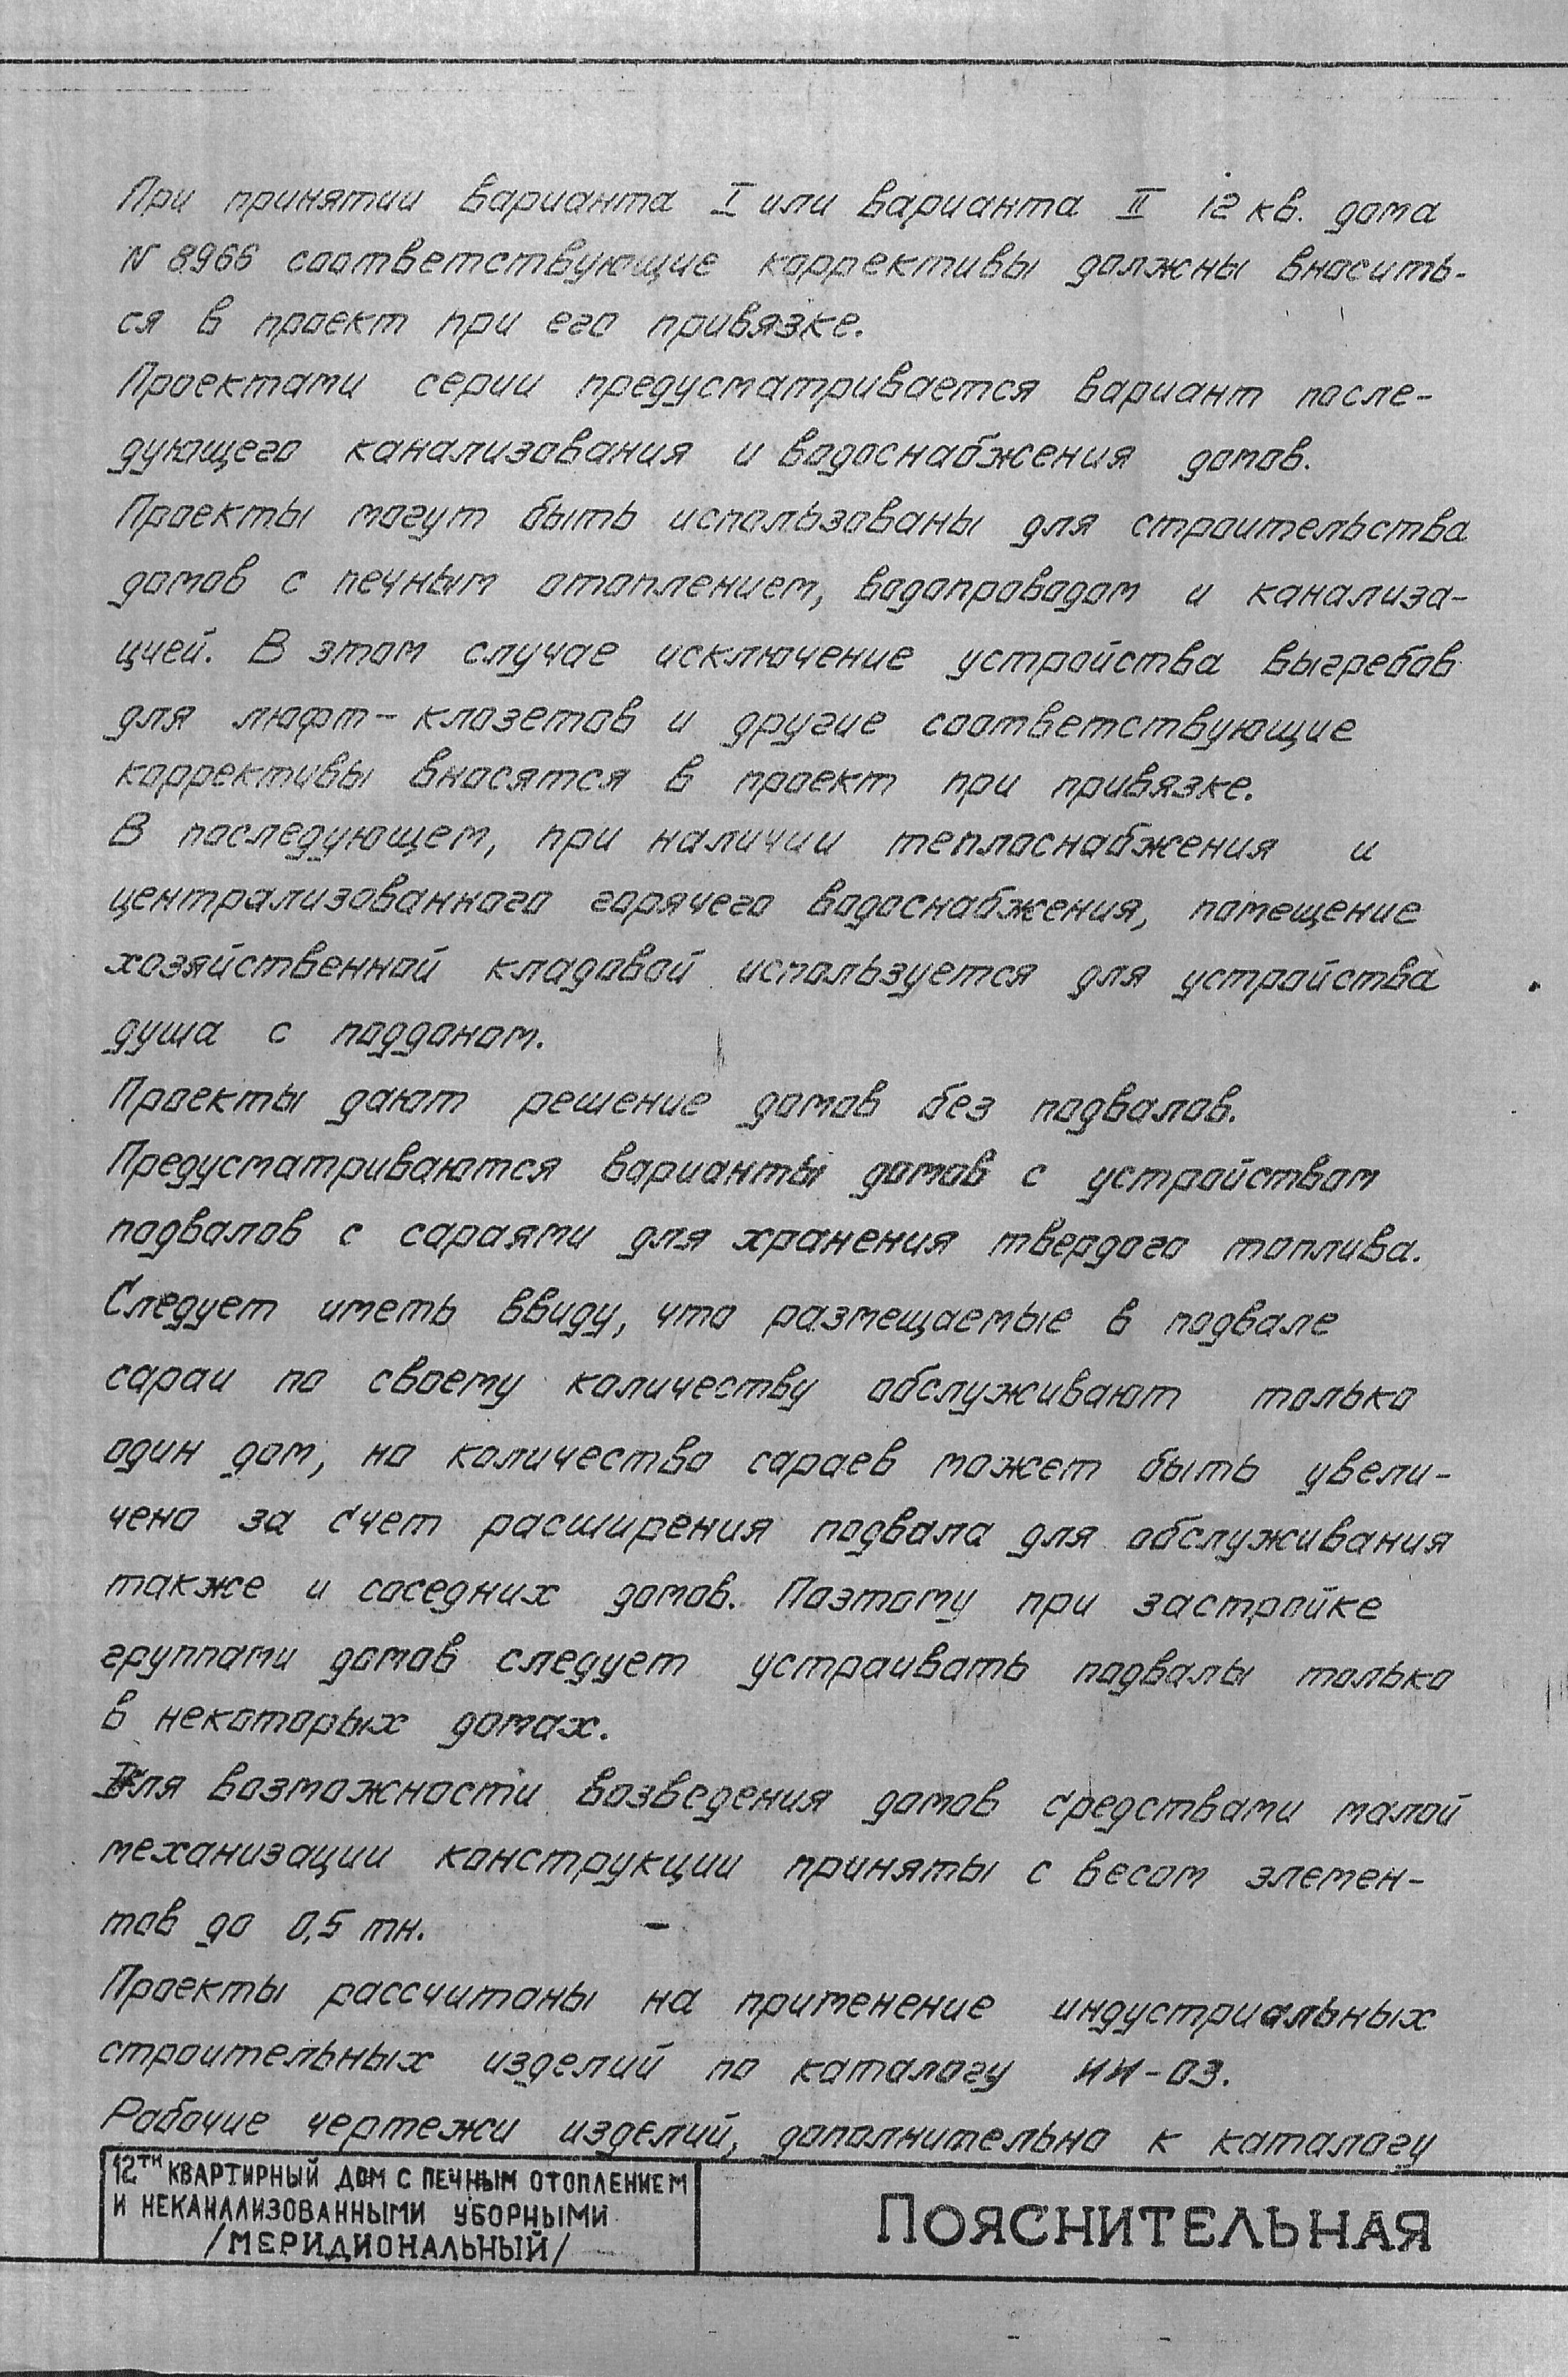 При принятии варианта I или варианта II 12 кв. дома
N 8966 соответствующие коррективы должны вносить-
ся в проект при его привязке.
Проектами серии предусматривается вариант после-
дующего канализования и водоснабжения домов.
Проекты могут быть использованы для строительства
домов с печным отоплением, водопроводом и канализа-
цией. В этом случае исключение устройства выгребов
для люфт-клозетов и другие соответствующие
коррективы вносятся в проект при привязке.
В последующем, при наличии теплоснабжения и
централизованного горячего водоснабжения, помещение
хозяйственной кладовой используется для устройства
душа с поддоном.
Проекты дают решение домов без подвалов.
Предусматриваются варианты домов с устройством
подвалов с сараями для хранения твердого топлива.
Следует иметь ввиду, что размещаемые в подвале
сараи по своему количеству обслуживают только
один дом, но количество сараев может быть увели-
чено за счет расширения подвала для обслуживания
также и соседних домов. Поэтому при застройке
группами домов следует устраивать подвалы только
в некоторых домах.
Для возможности возведения домов средствами малой
механизации конструкции приняты с весом элемен-
тов до 0,5 тн.
Проекты рассчитаны на применение индустриальных
строительных изделий по каталогу ИИ-03.
Рабочие чертежи изделий, дополнительно к каталогу
12ти КВАРТИРНЫЙ ДОМ С ПЕЧНЫМ ОТОПЛЕНИЕМ
И НЕКАНАЛИЗОВАННЫМИ УБОРНЫМИ
/МЕРИДИОНАЛЬНЫЙ/
ПОЯСНИТЕЛЬНАЯ